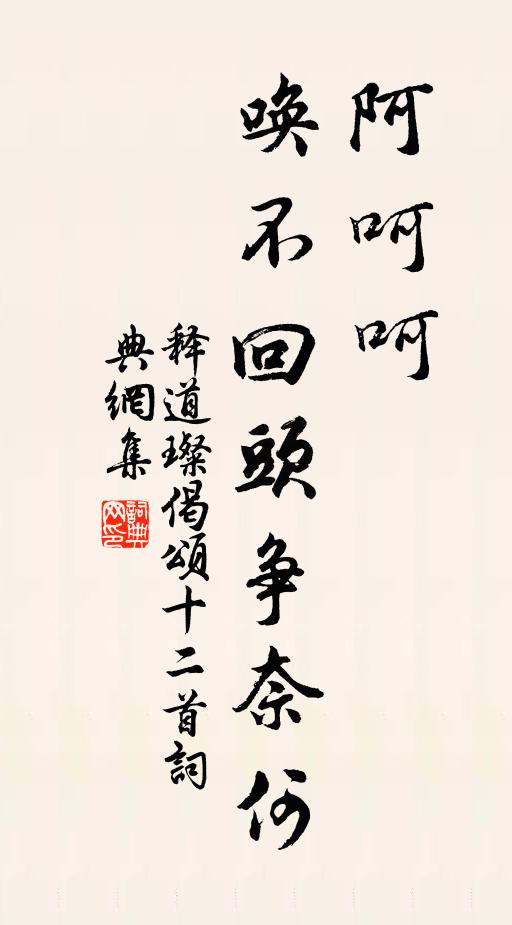 阿呵呵
唤不回頭争奈何
释道璨偈頌十二首詞
典網集
詞典网印